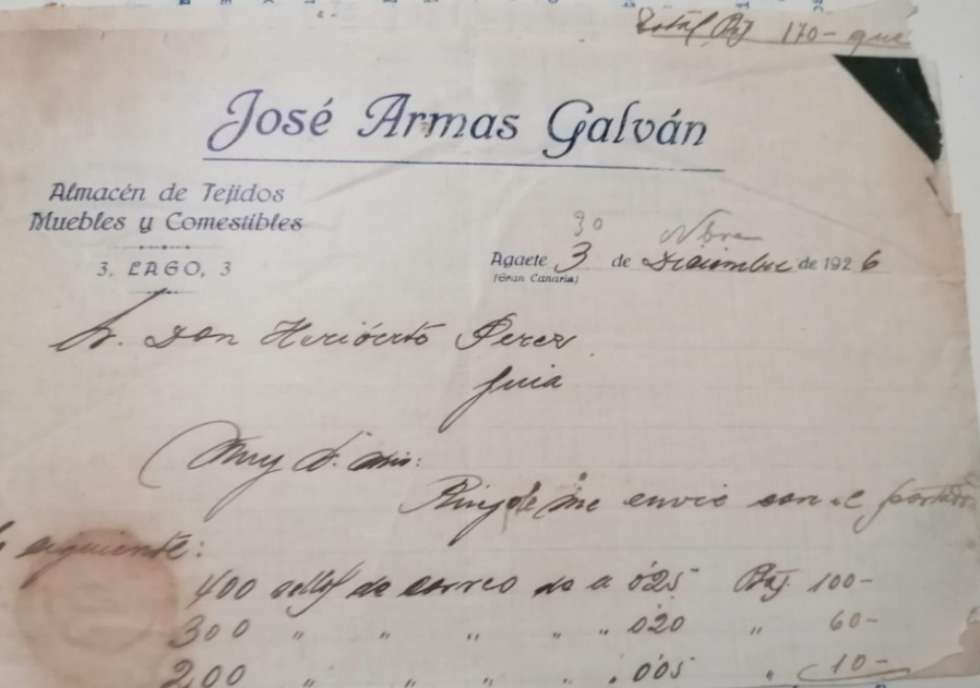 Total Ptas 170- que
José Armas Galván
Almacén de Tejidos
Muebles y Comestibles
3, LAGO, 3
30 Nbre
Agaete 3 de Diciembre de 1926
(Gran Canaria)
Sr. Don Heriberto Perez
Guia
Muy Sr. mio:
Ruegole me envie con el portador
lo siguiente:
400 sellos de correo de a 0'25 Ptas. 100-
300 " " " " " 0'20 " 60-
200 " " " " " 0'05 " 10-